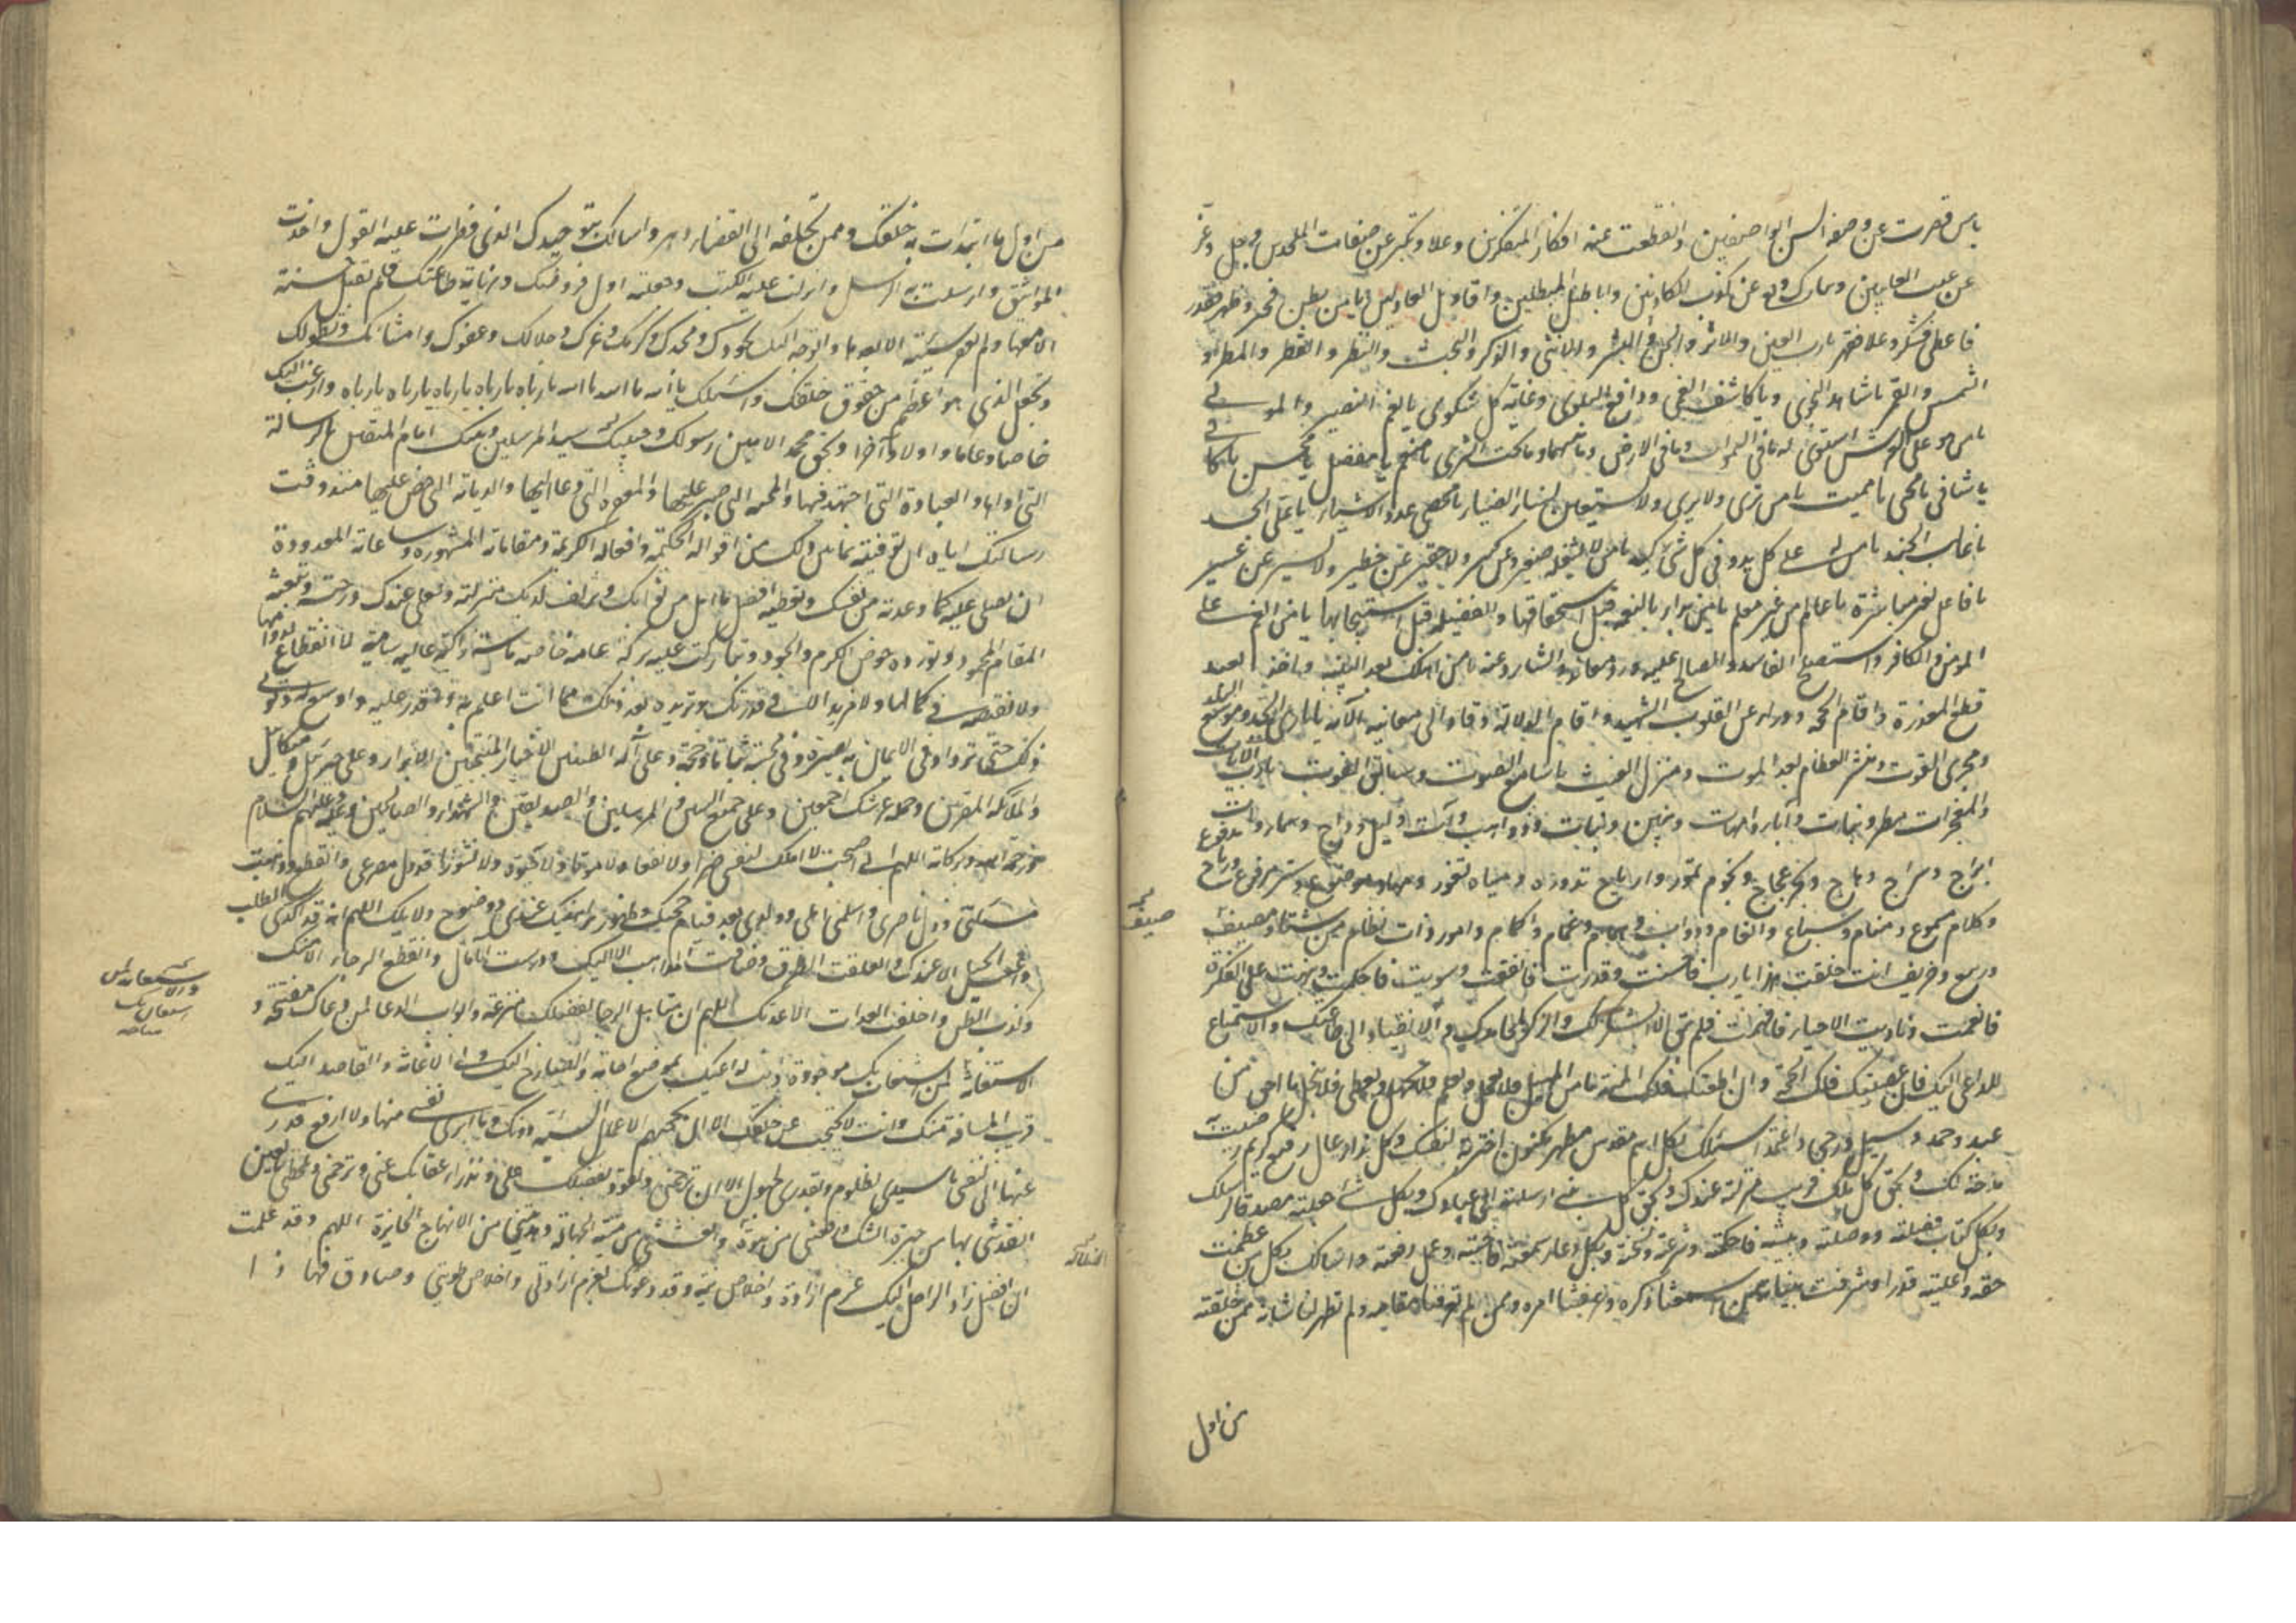 يا من قصرت عن وصفه السن الواصفين وانقطعت عنه افكار المتفكرين وعلا وتكبر عن صفات الملحدين وجل وعز
عن عيب العايبين وتبارك وتعالى عن كذب الكاذبين واباطيل المبطلين واقاويل العادلين يا من بطن فخبر وظهر فقدر
فاعطى فشكر وعلا فقهر يا رب العين والاثر والجن والبشر والانثى والذكر والبحث والنظر والقطر والمطر و
الشمس والقمر يا شاهد النجوى ويا كاشف الغمى ودافع البلوى وغاية كل شكوى يا نعم النصير والمولى
يا من هو على العرش استوى له ما فى السموات وما فى الارض وما بينهما وما تحت الثرى يا منعم يا مفضل يا محسن يا كافى
يا شافى يا محيى يا مميت يا من يرى ولا يرى ولا يستعين بسناء الضياء يا محصى عدد الاشياء يا على الجد
يا غالب الجند يا من له على كل يد وفى كل شئ كيد يا من لا يشغله صغير عن كبير ولا حقير عن خطير ولا يسير عن عسير
يا فاعل بغير مباشرة يا عالم من غير معلم يا من بدأ بالنعمة قبل استحقاقها والفضيلة قبل استيجابها يا من انعم على
المؤمن والكافر واستصلح الفاسد والصالح عليه ورد المعاند والشارد عنه يا من اهلك بعد البينة واخذ بعد
قطع المعذرة واقام الحجة ودرأ عن القلوب الشبهة واقام الدلالة وقاد الى معاينة الآية يا بارئ الجسد وموسع البلد
ومجرى القوت ومنشر العظام بعد الموت ومنزل الغيث يا سامع الصوت وسابق الفوت يا رب الآيات
والمعجزات مطر ونبات وآباء وامهات وبنين وبنات وذاهب وآت وليل داج وسماء ذات
ابراج وسراج وهاج وبحر عجاج ونجوم تمور وارياح تدور ومياه تغور ومهاد موضوع وستر مرفوع ورياح تدفع
وكلام مسموع ومنام وسباع وانعام ودواب وهوام وغمام واكام وامور ذات نظام من شتاء ومصيف
وربيع وخريف انت خلقت هذا يا رب فاحسنت وقدرت فاتقنت وسويت فاحكمت ونبهت على الفكرة
فانعمت وناديت الاحياء فافهمت فلم يبق الا الشكر لك والذكر لمحامدك والانقياد الى طاعتك والاستماع
للداعى اليك فان عصيتك فلك الحجة وان اطعتك فلك المنة يا من يمهل فلا يعجل ويعلم فلا يجهل ويعطى فلا يبخل يا احق من
عبد وحمد وسئل ورجى واعتمد اسئلك بكل اسم مقدس مطهر مكنون اخترته لنفسك وكل ثناء عال رفيع كريم رضيت به
مدحة لك وبحق كل ملك قربت منزلته عندك وبحق كل نبى ارسلته الى عبادك وبكل شئ جعلته مصدقا لرسلك
وبكل كتاب فصلته ووصلته وبينته فاحكمته وشرعته ونسخته وبكل دعاء سمعته فاجبته وعمل رفعته واسالك بكل من عظمت
حقه واعليت قدره وشرفت بنيانه ممن اسمعتنا ذكره وعرفتنا امره وممن لم تعرفنا مقامه ولم تظهر لنا شانه ممن خلقته
من اول
صيف
من اول ما ابتدأت به خلقك وممن تخلقه الى انقضاء الدهر واسالك بتوحيدك الذى فطرت عليه العقول واخذت
المواثيق وارسلت به الرسل وانزلت عليه الكتب وجعلته اول فروضك ونهاية طاعتك فلم تقبل حسنة
الا معها ولم تغفر سيئة الا بعدها واتوجه اليك بجودك ومجدك وكرمك وعزك وجلالك وعفوك وامتنانك وتطولك
وبحقك الذى هو اعظم من حقوق خلقك واسئلك يا الله يا الله يا الله يا رباه يا رباه يا رباه يا رباه يا رباه وارغب اليك
خاصا وعاما واولا وآخرا وبحق محمد الامين رسولك وحبيبك سيد المرسلين ونبيك امام المتقين بالرسالة
التى اداها والعبادة التى اجتهد فيها والمحنة التى صبر عليها والمغفرة التى دعا اليها والديانة التى حض عليها منذ وقت
رسالتك اياه الى ان توفيته بما بين ذلك من اقواله الحكيمة وافعاله الكريمة ومقاماته المشهورة وساعاته المعدودة
ان تصلى عليه كما وعدته من نفسك وتعطيه افضل ما امل من ثوابك وتزلف لديك منزلته وتعلى عندك درجته وتبعثه
المقام المحمود وتورده حوض الكرم والجود وتبارك عليه بركة عامة خاصة ماسة زاكية عالية سامية لا انقطاع لدوامها
ولا نقيصة فى كمالها ولا مزيد الا فى قدرتك وتزيده بعد ذلك مما انت اعلم به واقدر عليه واوسع له وتؤتى
ذلك حتى يزداد فى الايمان به بصيرة وفى محبته ثباتا وحجة وعلى آله الطيبين الاخيار المنتجبين الابرار وعلى جبرئيل وميكائيل
والملائكة المقربين وحملة عرشك اجمعين وعلى جميع النبيين والمرسلين والصديقين والشهداء والصالحين وعليه وعليهم السلام
ورحمة الله وبركاته اللهم انى اصبحت لا املك لنفسى ضرا ولا نفعا ولا موتا ولا حيوة ولا نشورا قد ذل مصرعى وانقطع وذهبت
مسئلتى وذل ناصرى واسلمنى اهلى وولدى بعد قيام حجتك وظهور براهينك عندى ووضوح دلائلك اللهم انه قد اكدى الطلب
واعيت الحيل الا عندك وانغلقت الطرق وضاقت المذاهب الا اليك ودرست الآمال وانقطع الرجاء الا منك
وكذب الظن واخلفت العدات الا عدتك اللهم ان مناهل الرجاء لفضلك مترعة وابواب الدعاء لمن دعاك مفتحة و
الاستغاثة لمن استغاث بك موجودة وانت لداعيك بموضع اجابة وللصارخ اليك ولى الاغاثة والقاصد اليك
قريب المسافة منك وانت لا تحتجب عن خلقك الا ان تحجبهم الاعمال السيئة دونك وما ابرئ نفسى منها ولا ارفع قدرى
عنها انى لنفسى يا سيدى لظلوم وبقدرى لجهول الا ان ترحمنى وتعود بفضلك على وتدرأ عقابك عنى وترحمنى وتلحظنى بالعين
انقذتنى بها من حيرة الشك ورفعتنى من هوة وانعشتنى من ميتة الجهالة وهديتنى بها من الانهاج الجائرة اللهم وقد علمت
ان افضل زاد الراحل اليك عزم ارادة واخلاص نية وقد دعوتك بعزم ارادتى واخلاص طويتى وصادق
الضلالة